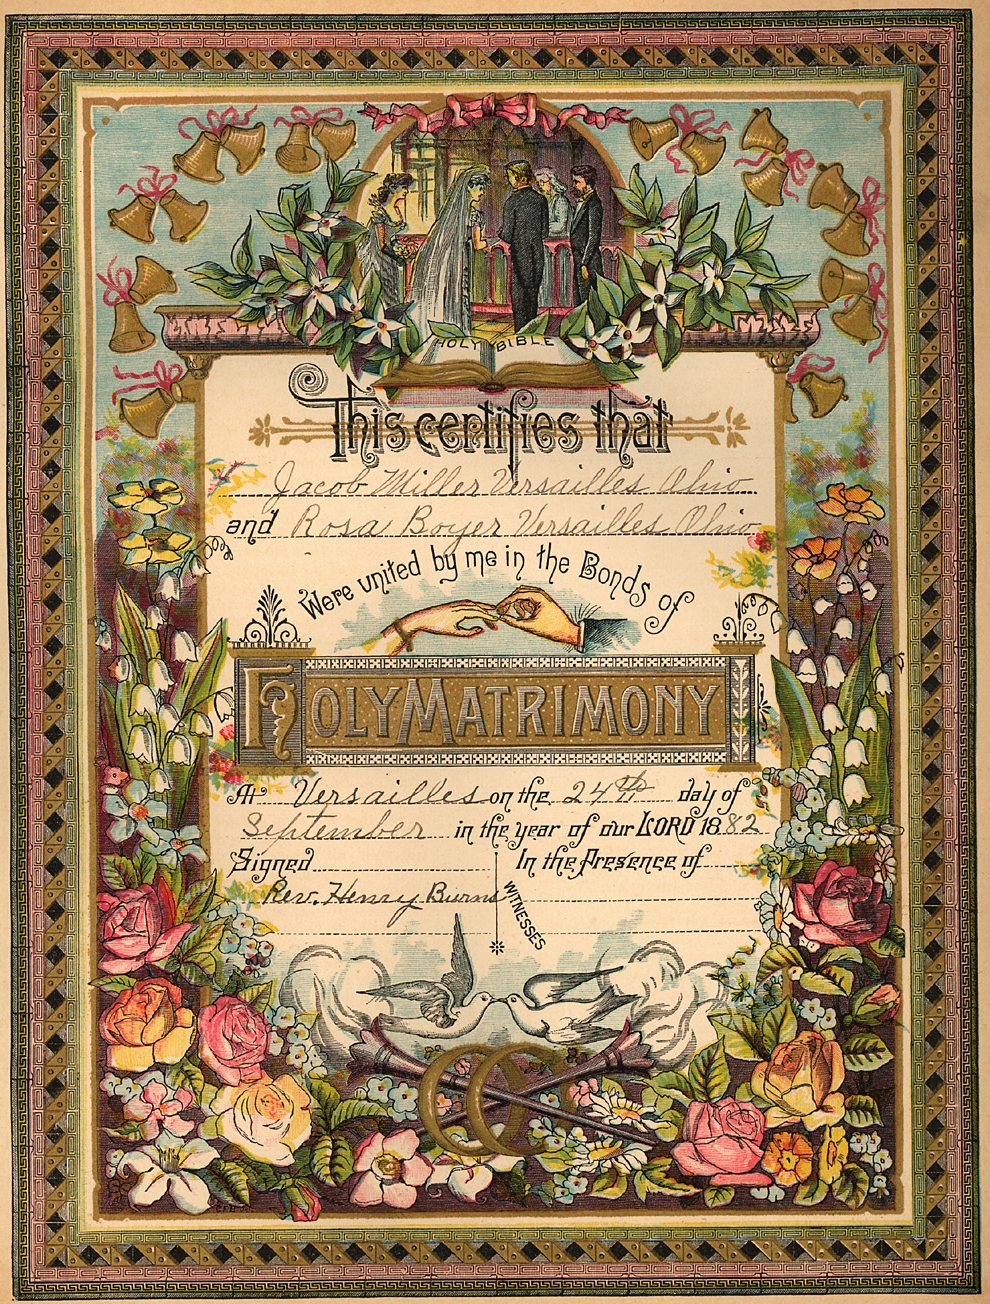 HOLY BIBLE
This certifies that
Jacob Miller Versailles Ohio
and Rosa Boyer Versailles Ohio
Were united by me in the Bonds of
HOLY MATRIMONY
At Versailles on the 24th day of
September in the year of our LORD 1882
Signed In the Presence of
Rev. Henry Burns
WITNESSES